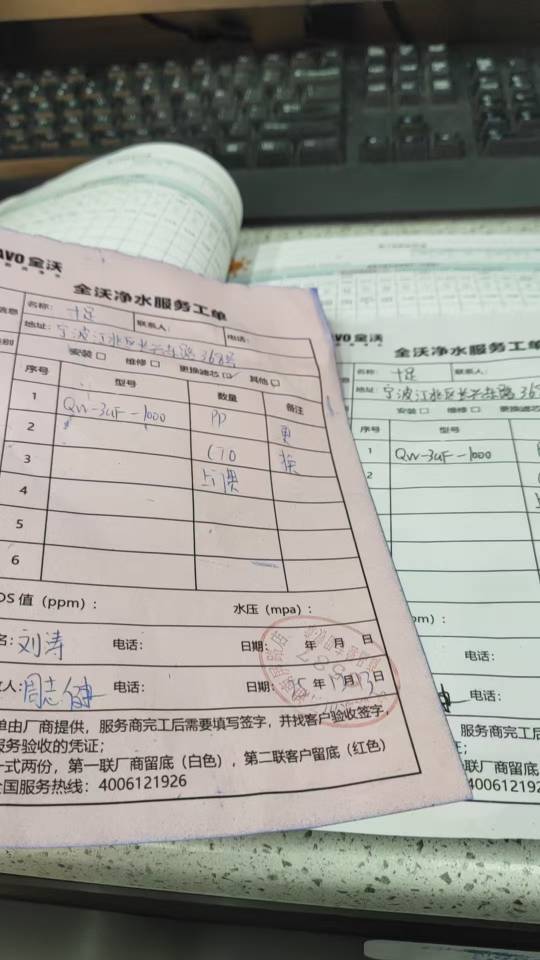 AVO 全沃
全沃净水服务工单
信息 名称: 十足 联系人: 电话:
地址: 宁波江北区长兴东路368号
别 安装□ 维修□ 更换滤芯☑ 其他□
序号 型号 数量 备注
1 QW-3UF-1000 PP 更
2
3 C70 换
4
5
6
DS 值（ppm）: 水压（mpa）:
名: 刘涛 电话: 日期: 年 月 日
人: 周志健 电话: 日期: 年 月 13日
单由厂商提供，服务商完工后需要填写签字，并找客户验收签字，
服务验收的凭证；
一式两份，第一联厂商留底（白色），第二联客户留底（红色）
全国服务热线：4006121926
AVO 全沃
全沃净水服务工单
名称: 十足 联系人:
地址: 宁波江北区长兴东路36
安装□ 维修□ 更换滤芯
序号 型号
1 QW-3UF-1000
2
pm）:
电话:
电话:
服务商完工
证；
联厂商留底
400612192